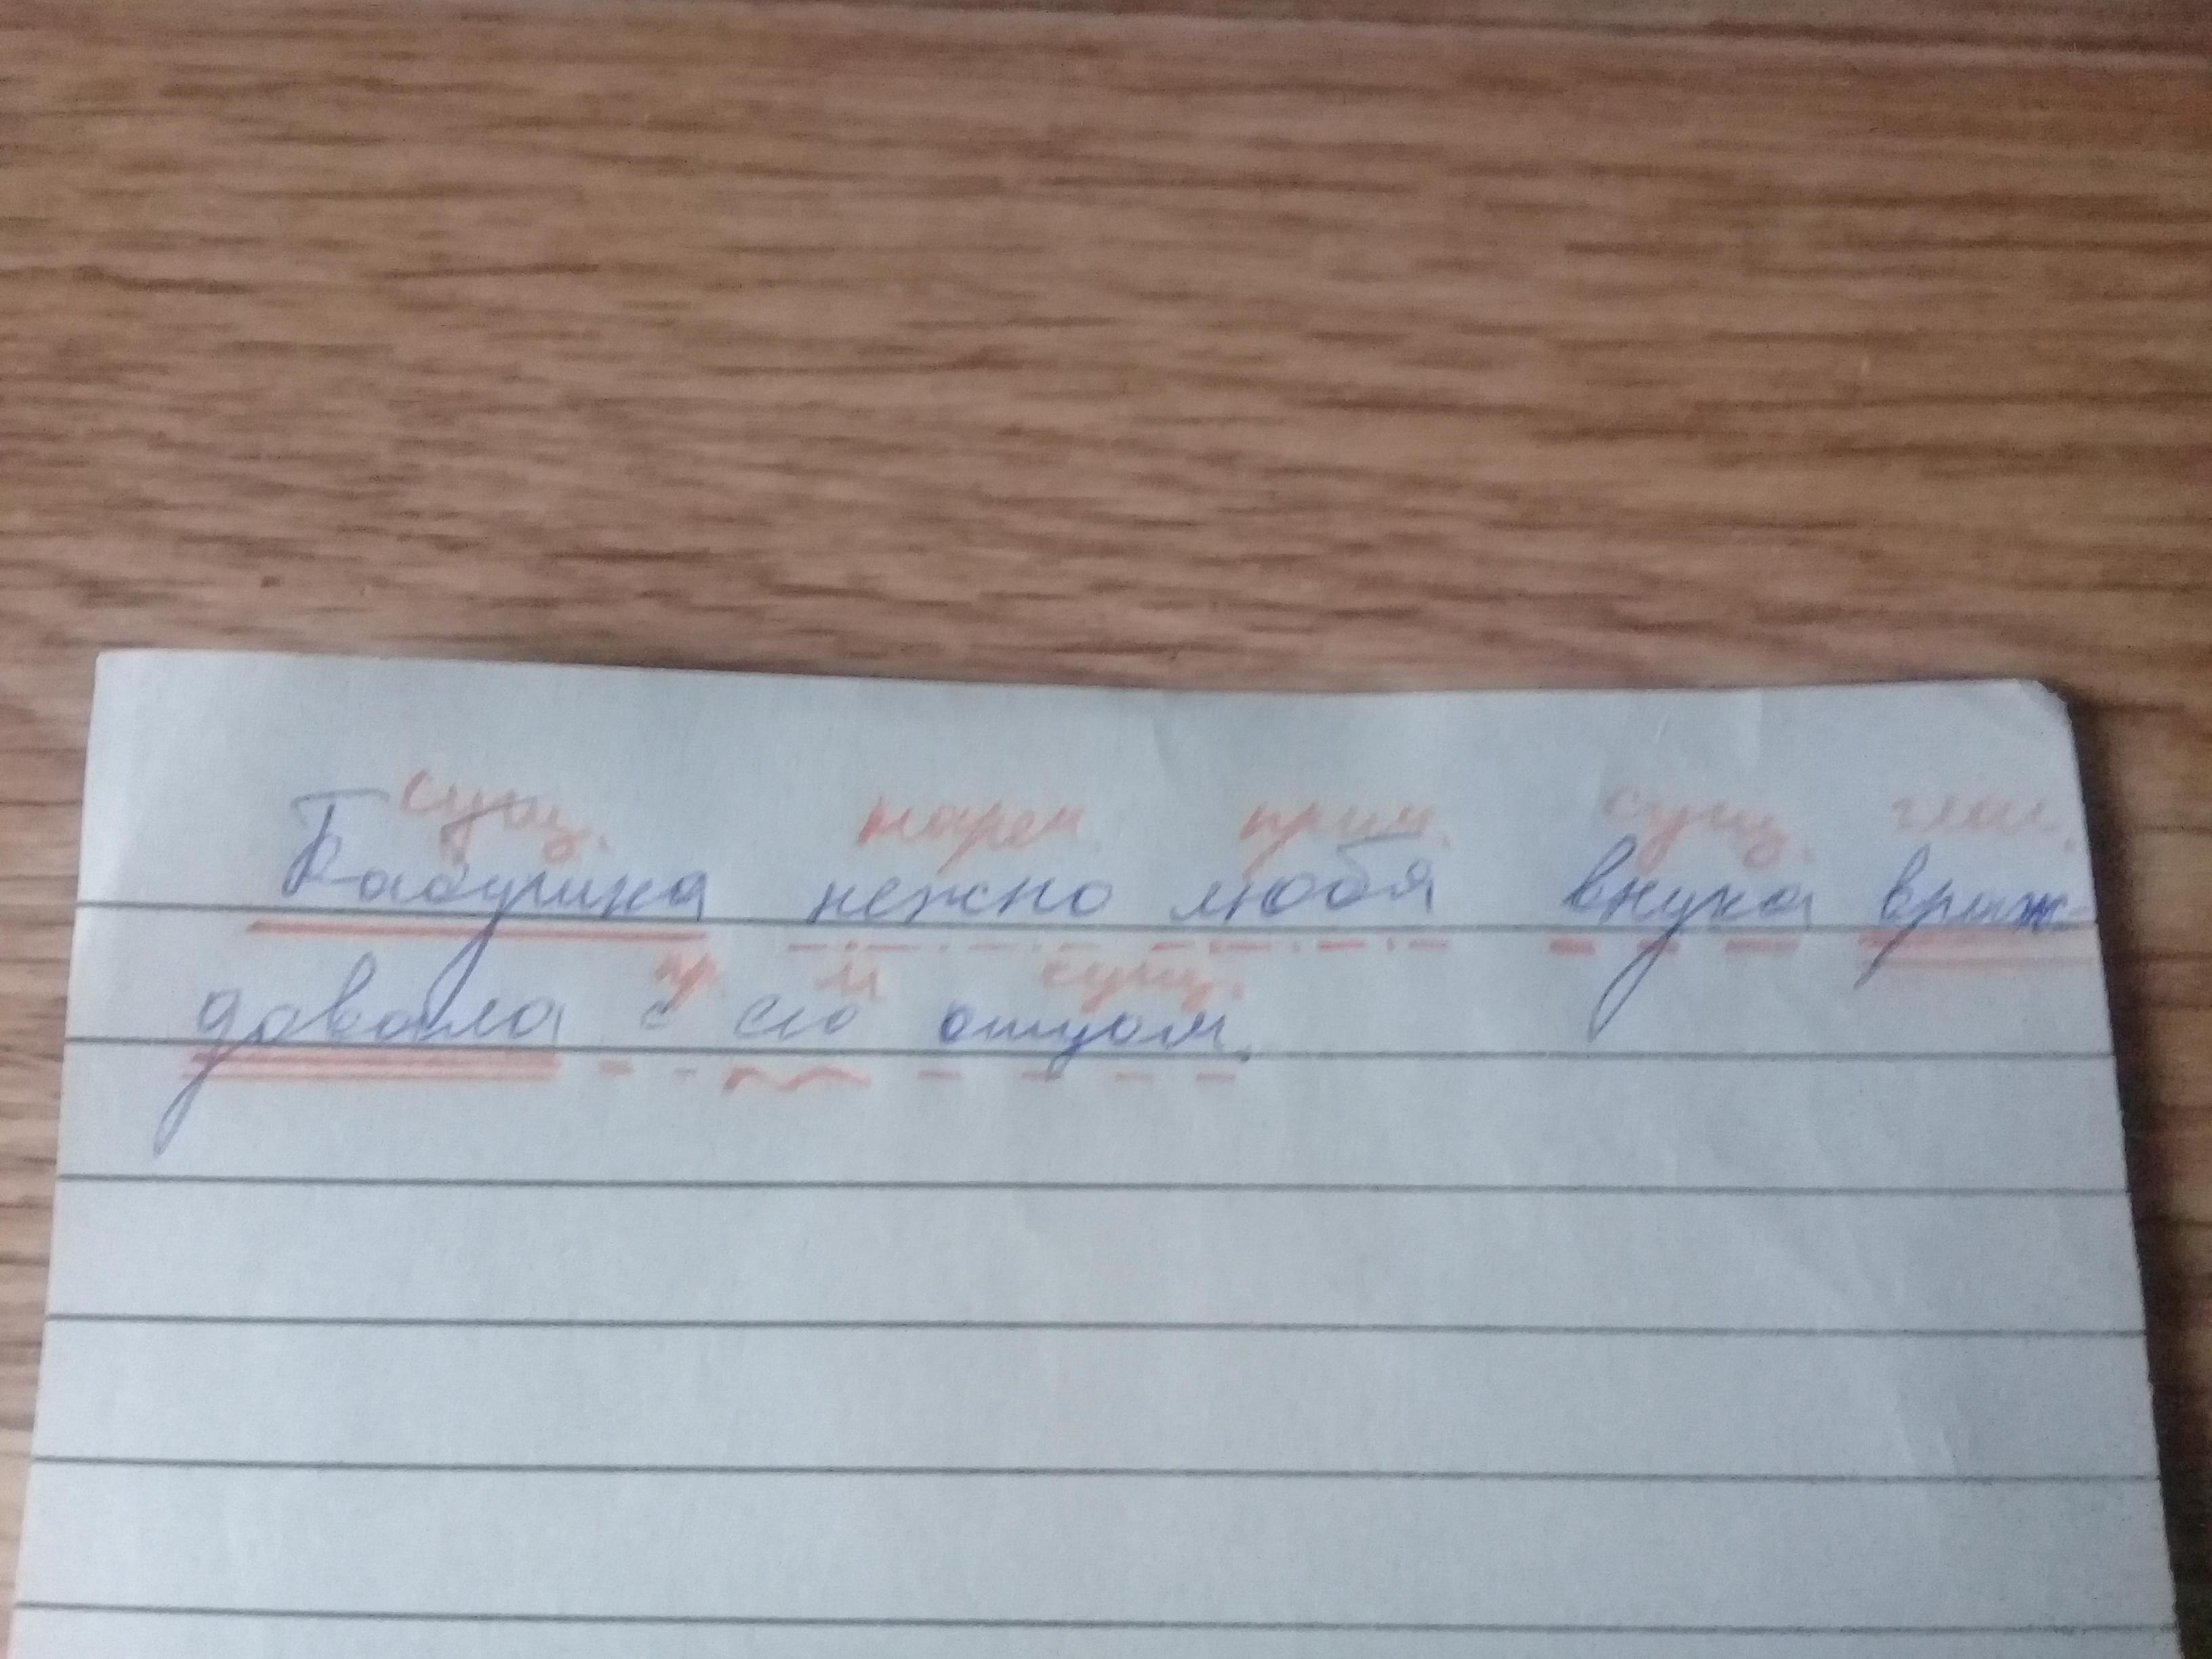 сущ. нареч. прич. сущ. глаг.
Бабушка нежно любя внука враж-
пр. м сущ.
довала с его отцом.